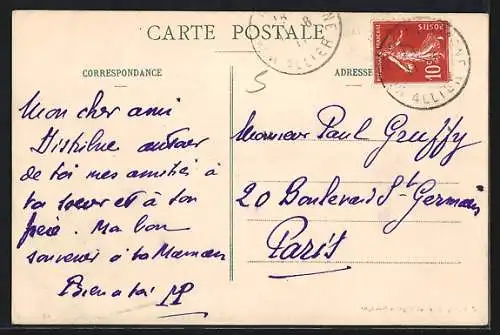 CARTE POSTALE
CORRESPONDANCE
ADRESSE
POSTES
10c
ALLIER
Mon cher ami
Distribue autour
de toi mes amitiés à
ta soeur et à ton
père. Ma bon
souvenir à ta Maman
Bien à toi MP
Monsieur Paul Gruffy
20 Boulevard St Germain
Paris